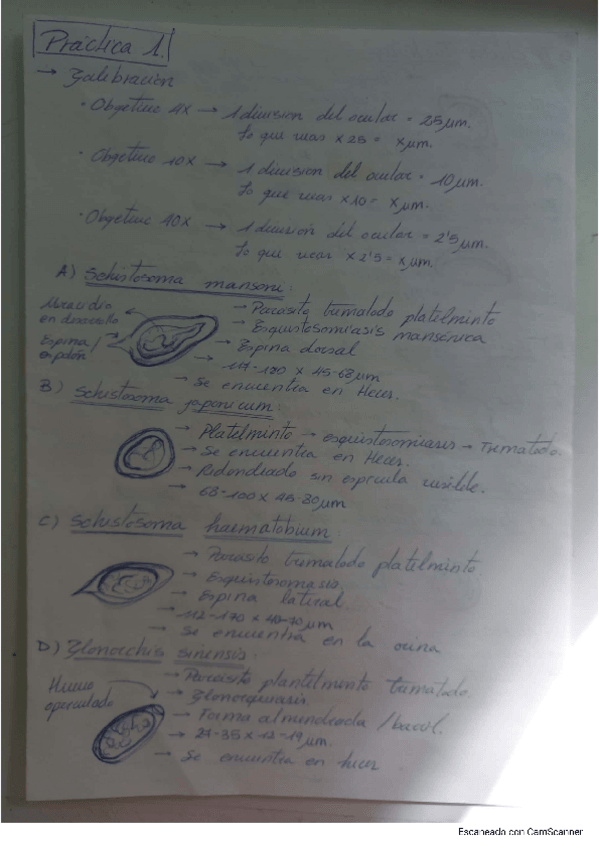 Práctica 1.
→ Calibración
· Objetivo 4x → 1 division del ocular = 25 µm.
Lo que veas x 25 = x µm.
· Objetivo 10x → 1 division del ocular = 10 µm.
Lo que veas x 10 = x µm.
· Objetivo 40x → 1 división del ocular = 2'5 µm.
Lo que veas x 2'5 = x µm.
A) Schistosoma mansoni:
Miracidio
en desarrollo
Espina /
espolón
→ Parásito trematodo platelminto
→ Esquistosomiasis mansónica
→ Espina dorsal
→ 45-68 µm
→ Se encuentra en Heces.
B) Schistosoma japonicum:
→ Platelminto → esquistosomiasis → Trematodo.
→ Se encuentra en Heces.
→ Redondeado sin espicula visible.
→ 68-100 x 45-80 µm
C) Schistosoma haematobium:
→ Parásito trematodo platelminto.
→ Esquistosomasis.
→ Espina lateral
→ 112-170 x 40-70 µm
→ Se encuentra en la orina
D) Clonorchis sinensis.
Huevo
operculado
→ Parasito plantelminto trematodo.
→ Clonorquiasis.
→ Forma almendrada /
→ 27-35 x 12-19 µm.
→ Se encuentra en heces
Escaneado con CamScanner